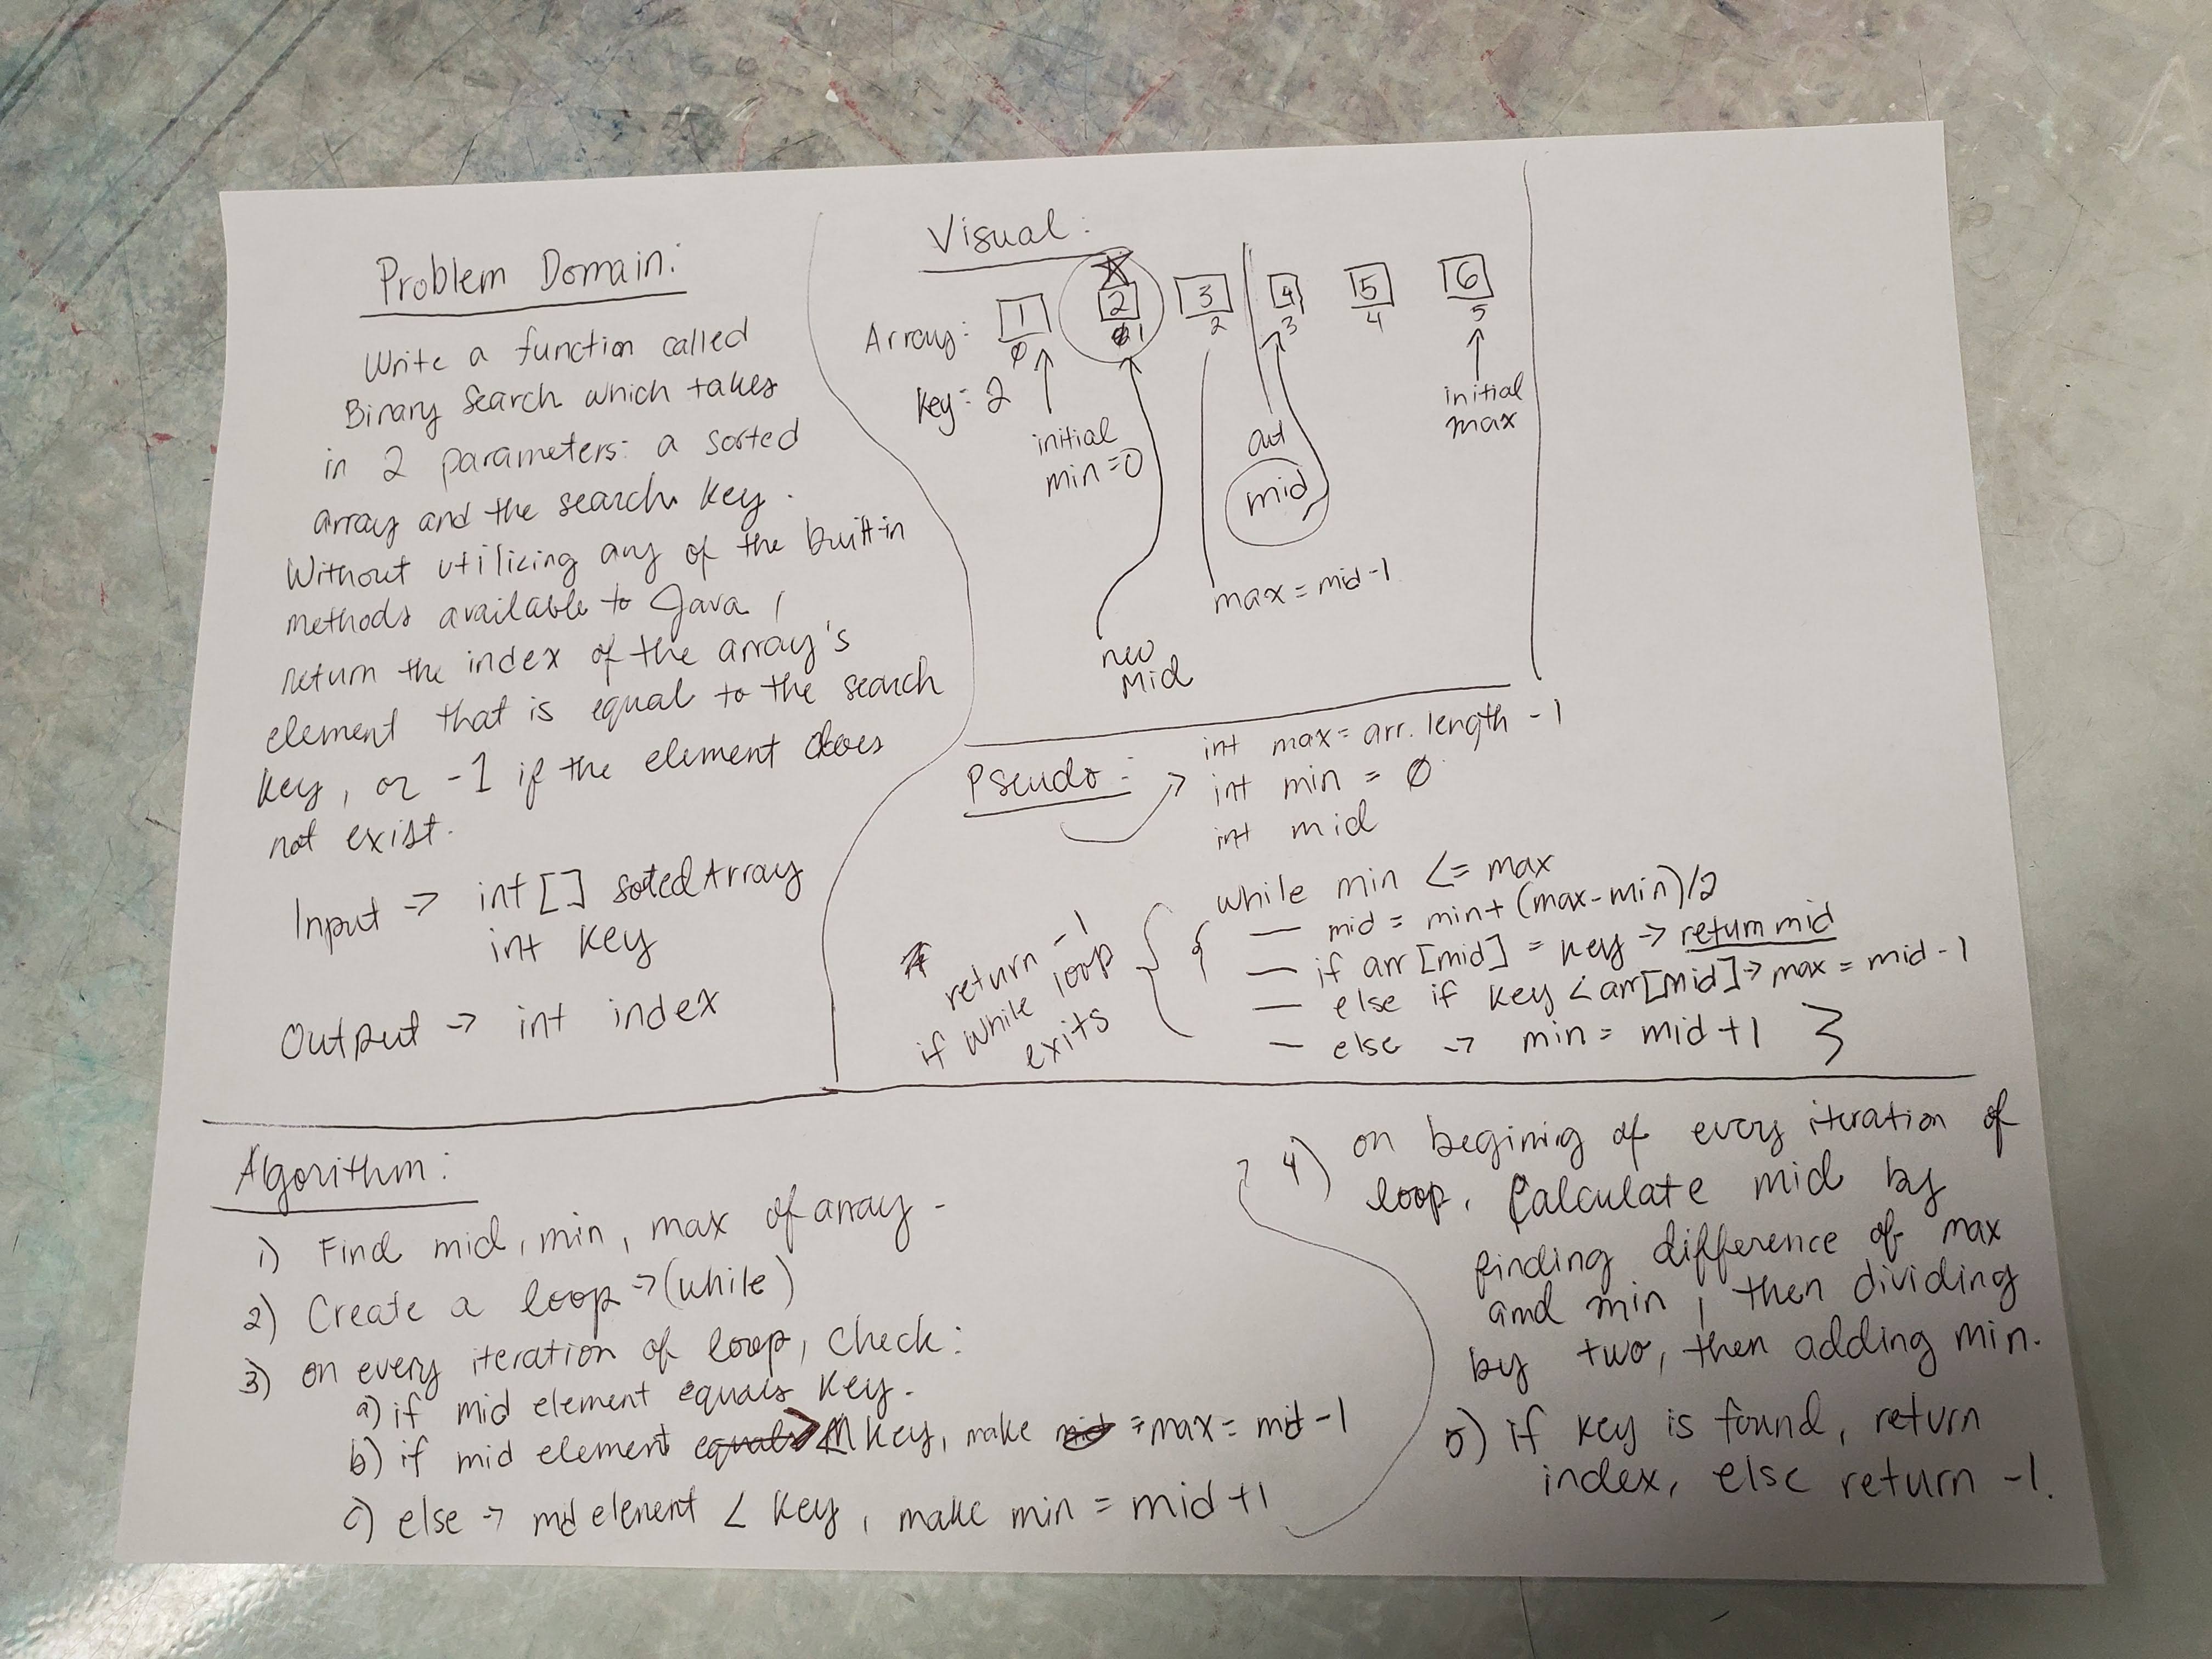 Problem Domain:
Write a function called
Binary Search which takes
in 2 parameters: a sorted
array and the search key.
Without utilizing any of the built-in
methods available to Java,
return the index of the array's
element that is equal to the search
key, or -1 if the element does
not exist.
Input -> int [] sotedArray
int key
Output -> int index
Visual:
Array: 1 2 3 4 5 6
0 1 2 3 4 5
key = 2
initial
min = 0
initial
max
mid
max = mid - 1
new
mid
Pseudo:
int max = arr. length - 1
int min = 0
int mid
while min <= max
{ — mid = min + (max - min)/2
— if arr [mid] = key -> return mid
— else if key < arr[mid] -> max = mid - 1
— else -> min = mid + 1 }
* return -1
if while loop
exits
Algorithm:
1) Find mid, min, max of array.
2) Create a loop -> (while)
3) on every iteration of loop, check:
a) if mid element equals key.
b) if mid element > key, make max = mid - 1
c) else -> mid element < key, make min = mid + 1
4) on begining of every iteration of
loop, Calculate mid by
finding difference of max
and min, then dividing
by two, then adding min.
5) if key is found, return
index, else return -1.